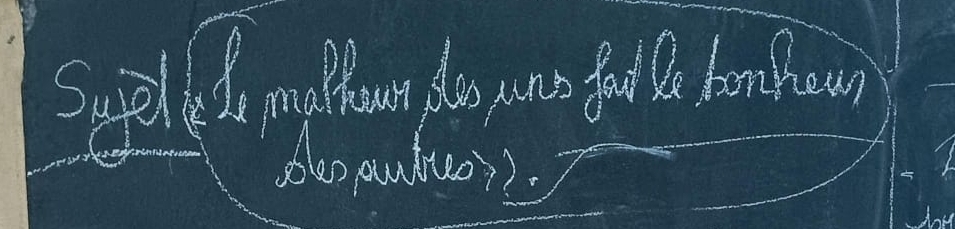 Sujet « Le malheur des uns fait le bonheur
des autres ».